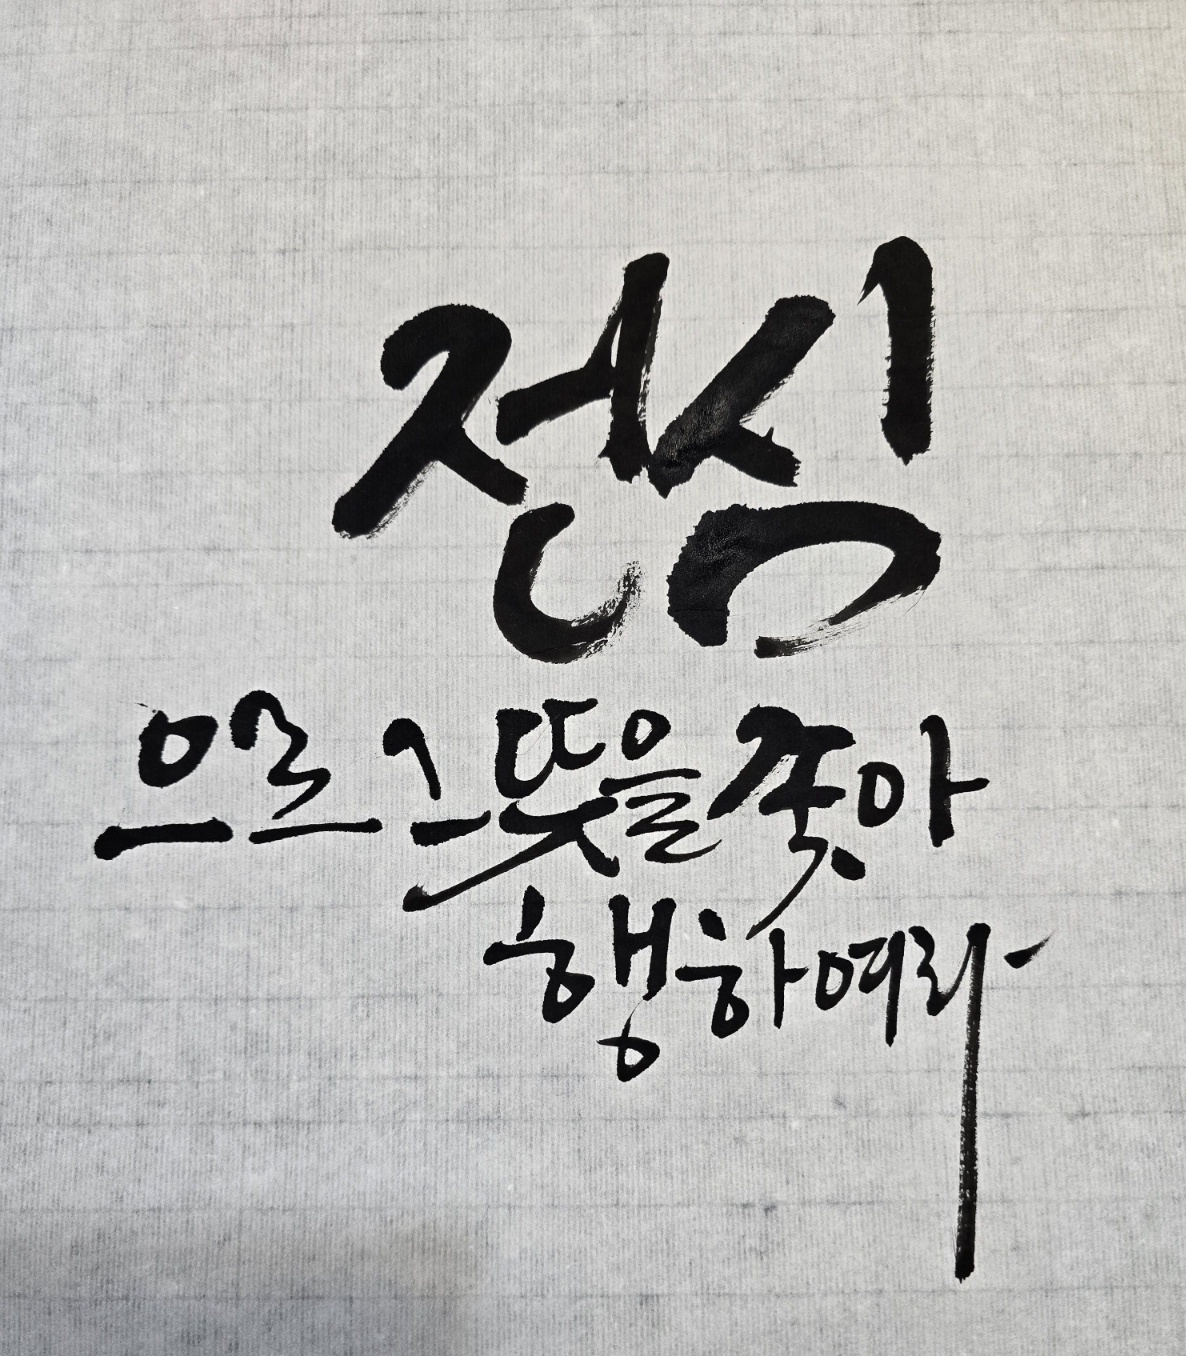 전심
으로 그 뜻을 찾아
행하여라